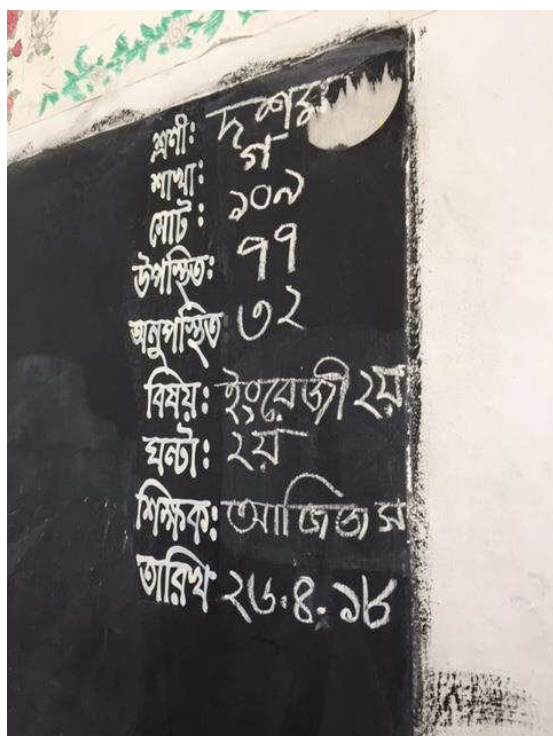 শ্রেণী: দশম
শাখা: গ
মোট: ১০৯
উপস্থিত: ৭৭
অনুপস্থিত ৩২
বিষয়: ইংরেজী ২য়
ঘন্টা: ২য়
শিক্ষক: আজিজ স
তারিখ ২৬.৪.১৮